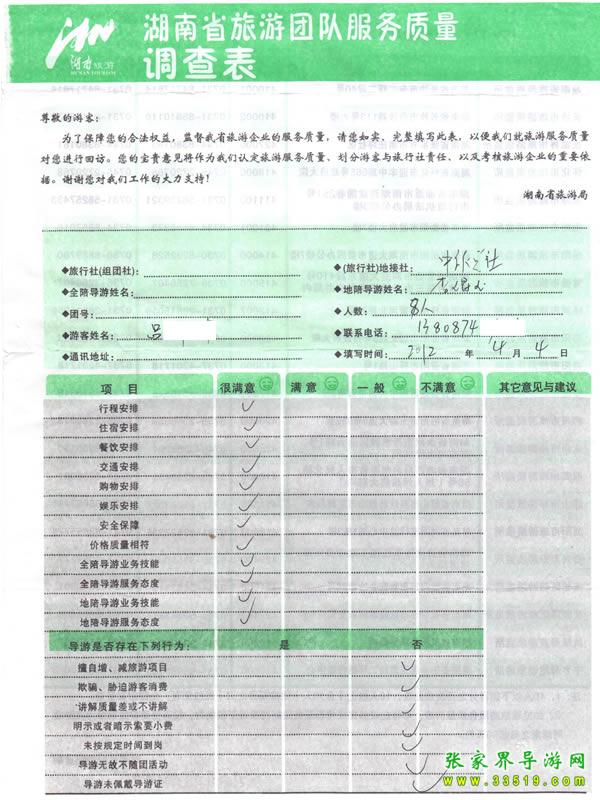 湖南省旅游团队服务质量
调查表
湖南旅游
HUNAN TOURISM
尊敬的游客：
为了保障您的合法权益，监督我省旅游企业的服务质量，请您如实、完整填写此表，以便我们就旅游服务质量
对您进行回访。您的宝贵意见将作为我们认定旅游服务质量、划分游客与旅行社责任、以及考核旅游企业的重要依
据。谢谢您对我们工作的大力支持！
湖南省旅游局
◆旅行社(组团社)：
◆(旅行社)地接社：中旅
◆全陪导游姓名：
◆地陪导游姓名：
◆团号：
◆人数：8人
◆游客姓名：吕
◆联系电话：1380874
◆通讯地址：
◆填写时间：2012 年 4 月 4 日
项 目 很满意 满 意 一 般 不满意 其它意见与建议
行程安排 ✓
住宿安排 ✓
餐饮安排 ✓
交通安排 ✓
购物安排 ✓
娱乐安排 ✓
安全保障 ✓
价格质量相符 ✓
全陪导游业务技能 ✓
全陪导游服务态度 ✓
地陪导游业务技能 ✓
地陪导游服务态度 ✓
导游是否存在下列行为： 是 否
擅自增、减旅游项目 ✓
欺骗、胁迫游客消费 ✓
讲解质量差或不讲解 ✓
明示或者暗示索要小费 ✓
未按规定时间到岗 ✓
导游无故不随团活动 ✓
导游未佩戴导游证 ✓
张家界导游网
www.33519.com